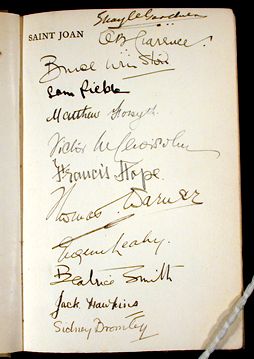 SAINT JOAN
O B Clarence.
Bruce Winston
Sam Fields
Matthew Forsyth
Victor
Francis Hope.
Thomas Warner
Eugene Leahy.
Beatrice Smith
Jack Hawkins
Sidney Bromley